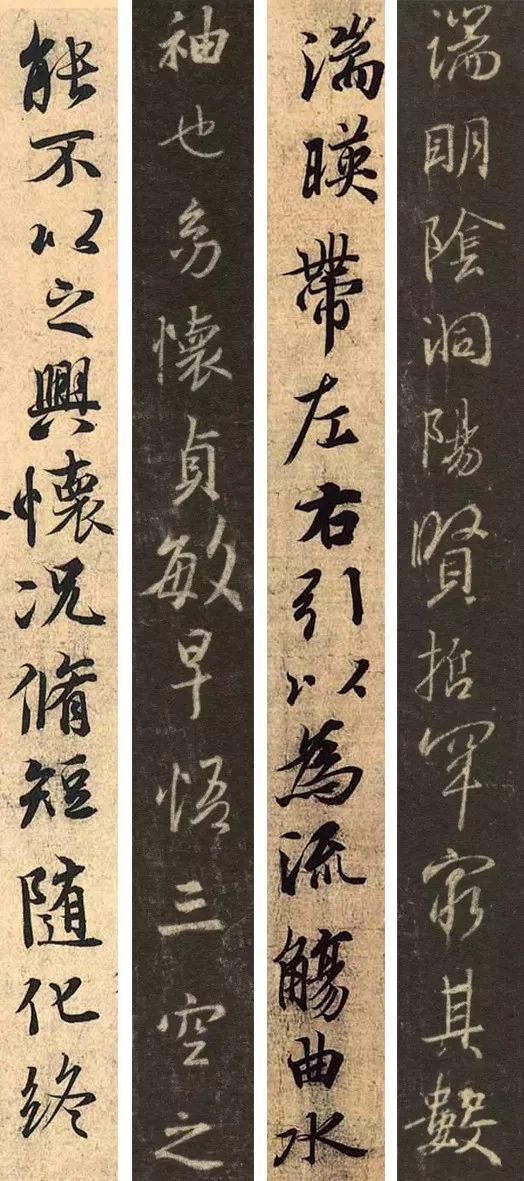 端明陰洞陽賢哲罕窮其數
湍暎帶左右引以為流觴曲水
袖也幼懷貞敏早悟三空之
能不以之興懷況脩短隨化終